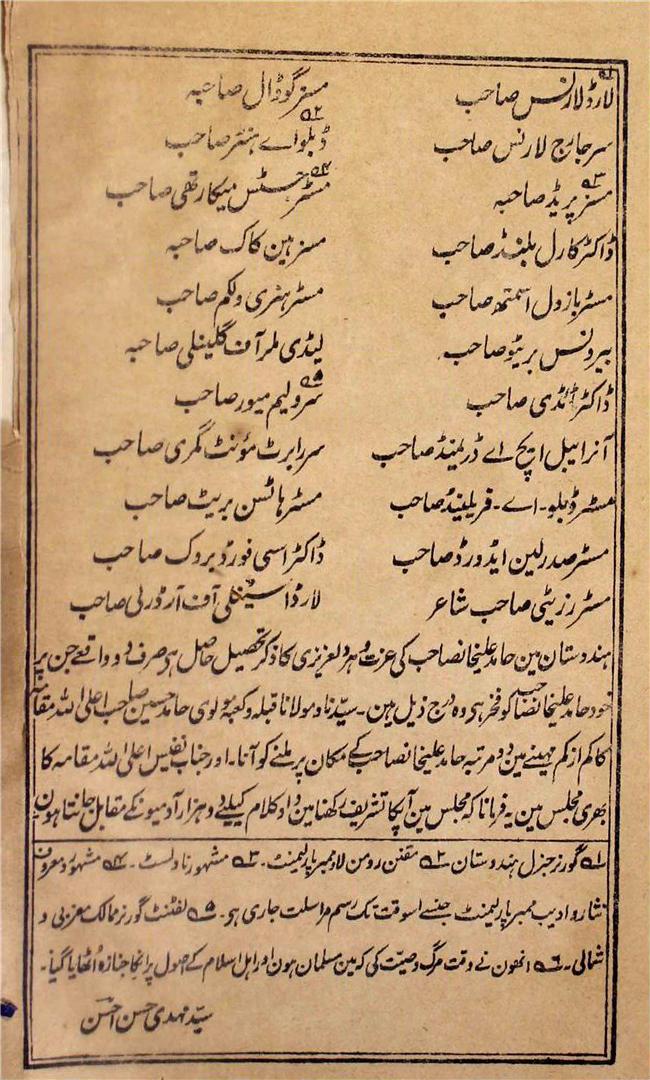 لارڈ لارنس صاحب ۱؎
مسز گوڈال صاحبہ
سر جارج لارنس صاحب
ڈبلو اے ہنٹر صاحب ۲؎
مسز پریڈ صاحبہ ۳؎
مسٹر جسٹس میکارتھی صاحب ۴؎
ڈاکٹر کارل بلنڈ صاحب
مسز ہین کاک صاحبہ
مسٹر بازول اسمتھ صاحب
مسٹر ہنری ولکم صاحب
بیرونس بریٹو صاحب
لیڈی ملر آف گلینلی صاحبہ
ڈاکٹر ڈنڈی صاحب
سر ولیم میور صاحب ۵؎
آنرایبل ایچ اے ڈریمنڈ صاحب
سر رابرٹ مؤنٹ گمری صاحب
مسٹر ڈبلو۔ اے۔ فریلینڈ صاحب
مسٹر ہاٹسن بریٹ صاحب
مسٹر صدرلین ایڈورڈ صاحب
ڈاکٹر اسی فورڈ بروک صاحب
مسٹر رزیٹی صاحب شاعر
لارڈ اسٹنلی آف آرڈرلی صاحب
ہندوستان مین حامد علیخانصاحب کی عزت و ہردلعزیزی کا ذکر تحصیل حاصل ہی صرف دو واقعے جن پر
خود حامد علیخانصاحب کو فخر ہی وہ درج ذیل ہین۔ سیّدنا و مولانا قبلہ و کعبہ مولوی حامد حسین صاحب اعلی اللہ مقامہ
کا کم از کم مہینے مین دو مرتبہ حامد علیخانصاحب کے مکان پر ملنے کو آنا۔ اور جناب نفیس اعلی اللہ مقامہ کا
بھری مجلس مین یہ فرمانا کہ مجلس مین آپکا تشریف رکھنا مین داد کلام کیلیے دو ہزار آدمیونکے مقابل جانتا ہون
۱؎ گورنر جنرل ہندوستان ۲؎ مقنن رومن لا و ممبر پارلیمنٹ۔ ۳؎ مشہور ناولسٹ۔ ۴؎ مشہور و معروف
نثار و ادیب ممبر پارلیمنٹ جنسے اسوقت تک رسم مراسلت جاری ہو۔ ۵؎ لفٹنٹ گورنر ممالک مغربی و
شمالی۔ ۶؎ انھون نے وقت مرگ وصیّت کی کہ مین مسلمان ہون اور اہل اسلام کے اصول پر انکا جنازہ اُٹھایا گیا۔
سیّد مہدی حسن احسن